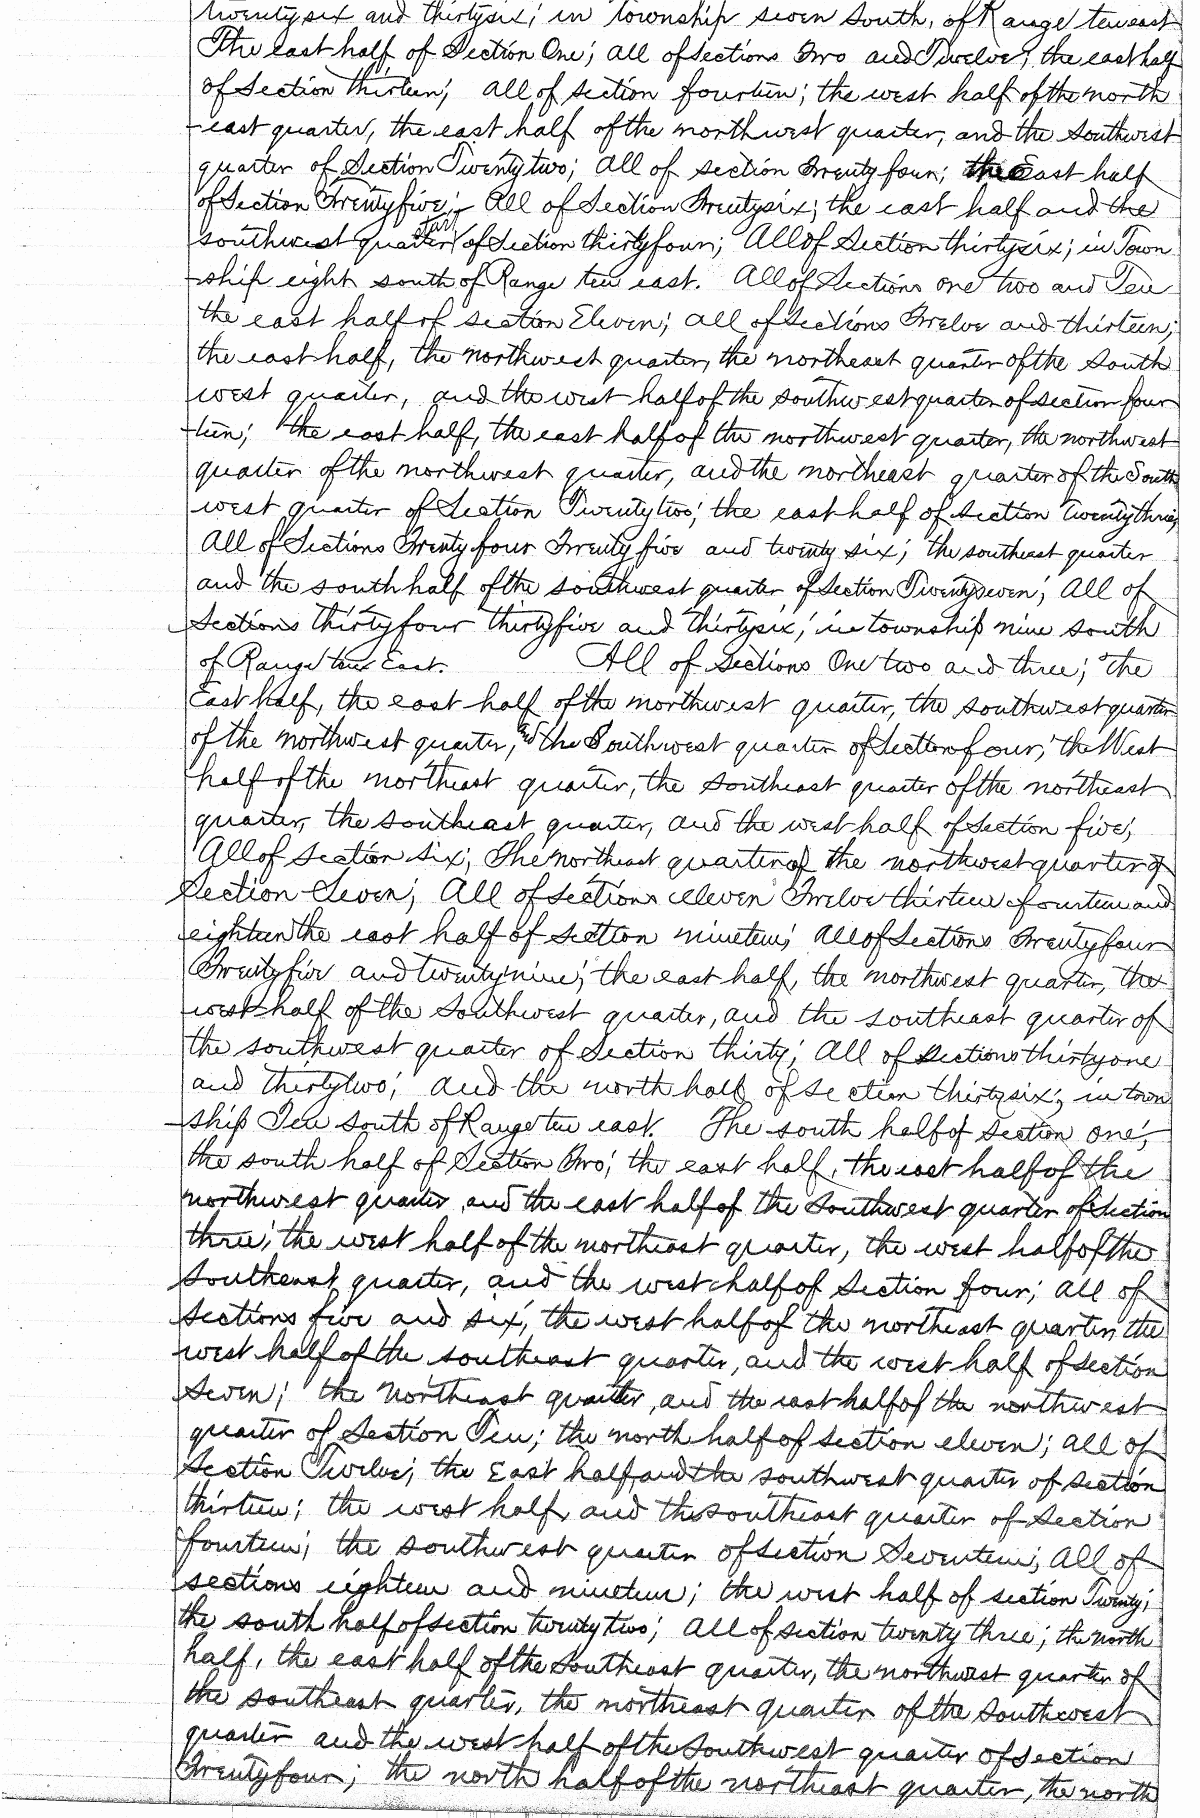 twentysix and thirtysix; in township seven south, of Range ten east
The east half of Section One; all of sections Two and Twelve; the east half
of Section thirteen; all of section fourteen; the west half of the north
-east quarter, the east half of the northwest quarter, and the southwest
quarter of Section Twenty two; All of section Twenty four; the East half
of Section Twenty five; All of Section Twentysix; the east half and the
southwest quarter of Section thirty four; All of Section thirtysix; in Town
-ship eight south of Range ten east. All of Sections one two and Ten
the east half of section Eleven; all of Sections Twelve and thirteen;
the east half, the northwest quarter, the northeast quarter of the South
west quarter, and the west half of the southwest quarter of section four
-teen; the east half, the east half of the northwest quarter, the northwest
quarter of the northwest quarter, and the northeast quarter of the South
west quarter of Section Twenty two; the east half of section Twenty three;
All of Sections Twenty four Twenty five and twenty six; the southeast quarter
and the south half of the southwest quarter of Section Twenty seven; All of
Sections thirty four thirty five and thirtysix; in township nine south
of Range ten East. All of Sections One two and three; the
East half, the east half of the northwest quarter, the southwest quarter
of the northwest quarter, and the Southwest quarter of Section four; the West
half of the northeast quarter, the southeast quarter of the northeast
quarter, the southeast quarter, and the west half of Section five;
All of section six; The northeast quarter of the northwest quarter of
Section Seven; All of sections eleven Twelve thirteen fourteen and
eighteen the east half of section nineteen; All of Sections Twenty four
Twenty five and twenty nine; the east half, the northwest quarter, the
west half of the Southwest quarter, and the southeast quarter of
the southwest quarter of Section thirty; All of Sections thirty one
and thirty two; and the north half of section thirty six; in town
-ship Ten south of Range ten east. The south half of Section one;
the south half of Section Two; the east half, the east half of the
northwest quarter and the east half of the Southwest quarter of Section
three; the west half of the northeast quarter, the west half of the
Southeast quarter, and the west half of Section four; all of
Sections five and six; the west half of the northeast quarter, the
west half of the southeast quarter, and the west half of section
Seven; the Northeast quarter, and the east half of the northwest
quarter of Section Ten; the north half of section eleven; all of
Section Twelve; the East half, and the southwest quarter of section
thirteen; the west half, and the southeast quarter of Section
fourteen; the southwest quarter of section Seventeen; All of
sections eighteen and nineteen; the west half of section Twenty;
the south half of section twenty two; All of section twenty three; the north
half, the east half of the Southeast quarter, the northwest quarter of
the southeast quarter, the northeast quarter of the Southwest
quarter and the west half of the Southwest quarter of section
Twenty four; the north half of the northeast quarter, the north